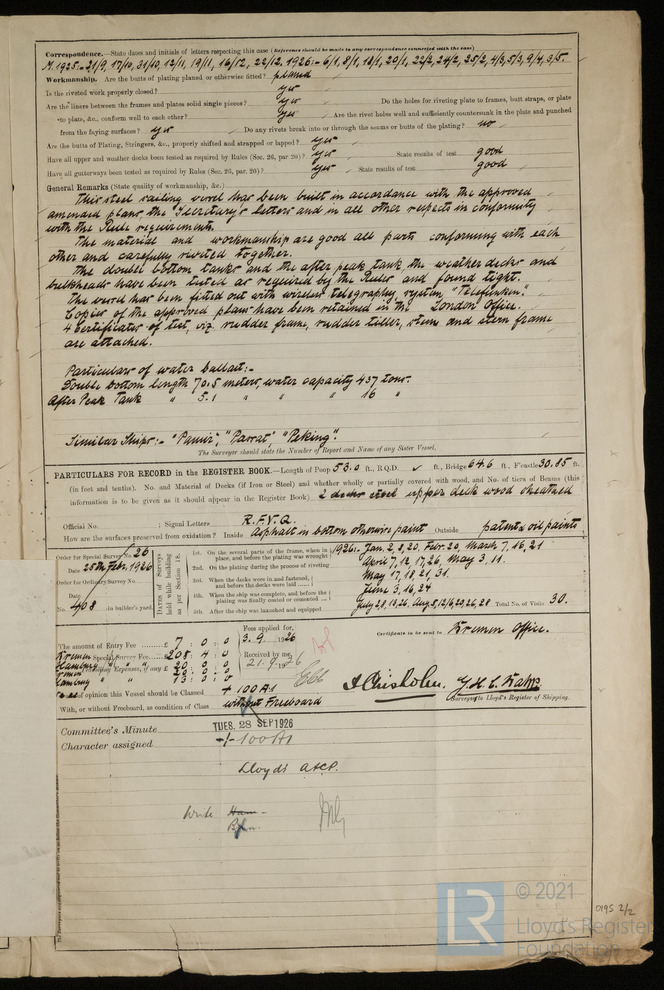 Correspondence.—State dates and initials of letters respecting this case (Reference should be made to any correspondence connected with the case)
M. 1925:- 21/9, 17/10, 31/10, 12/11, 19/11, 16/12, 22/12, 1926:- 6/1, 8/1, 18/1, 20/1, 22/2, 24/2, 25/2, 4/3, 5/3, 9/4, 3/5.
Workmanship. Are the butts of plating planed or otherwise fitted? planed
Is the riveted work properly closed? yes
Are the liners between the frames and plates solid single pieces? yes Do the holes for riveting plate to frames, butt straps, or plate
to plate, &c., conform well to each other? yes Are the rivet holes well and sufficiently countersunk in the plate and punched
from the faying surfaces? yes Do any rivets break into or through the seams or butts of the plating? no
Are the butts of Plating, Stringers, &c., properly shifted and strapped or lapped? yes
Have all upper and weather decks been tested as required by Rules (Sec. 26, par 20)? yes State results of test good
Have all gutterways been tested as required by Rules (Sec. 26, par. 20)? yes State results of test good
General Remarks (State quality of workmanship, &c.)
This steel sailing vessel has been built in accordance with the approved
amended plans, the Secretary's letters and in all other respects in conformity
with the Rule requirements.
The material and workmanship are good all parts conforming with each
other and carefully riveted together.
The double bottom tanks and the after peak tank, the weather decks and
bulkheads have been tested as required by the Rules and found tight.
The vessel has been fitted out with wireless telegraphy, system "Telefunken".
Copies of the approved plans have been retained in the London Office.
4 certificates of test, viz. rudder frame, rudder tiller, stem and stern frame
are attached.
Particulars of water ballast:-
Double bottom length 70.5 meters, water capacity 437 tons.
After Peak Tank " 5.1 " " " 16 "
Similar Ships:- "Pamir", "Parrat", "Peking".
The Surveyor should state the Number of Report and Name of any Sister Vessel.
PARTICULARS FOR RECORD in the REGISTER BOOK.—Length of Poop 53.0 ft., R.Q.D. ft., Bridge 64.6 ft., F'castle 30.85 ft.
(in feet and tenths). No. and Material of Decks (if Iron or Steel) and whether wholly or partially covered with wood, and No. of tiers of Beams (this
information is to be given as it should appear in the Register Book) 2 decks steel upper deck wood sheathed
Official No. ; Signal Letters R.F.V.Q.
How are the surfaces preserved from oxidation? Inside Asphalt in bottom otherwise paint Outside patent & oil paints
Order for Special Survey No. 26
Date 25th Febr. 1926
Order for Ordinary Survey No.
Date
No. 408 in builder's yard.
DATES of Surveys held while building as per Section 18.
1st. On the several parts of the frame, when in place, and before the plating was wrought
2nd. On the plating during the process of riveting
3rd. When the decks were in and fastened, and before the decks were laid
4th. When the ship was complete, and before the plating was finally coated or cemented
5th. After the ship was launched and equipped
1926:- Jan. 2, 8, 20, Febr. 20, March 7, 16, 21
April 7, 12, 17, 26, May 3, 11.
May 17, 18, 21, 31
June 3, 16, 24
Total No. of Visits 30.
The amount of Entry Fee £ 7 : 0 : 0
Special Survey Fee £ 208 : 4 : 0
Travelling Expenses, if any £
Fees applied for, 3. 9. 1926
Received by me, 21. 9. 1926
Certificate to be sent to Bremen Office.
opinion this Vessel should be Classed + 100 A1
With, or without Freeboard, as condition of Class without Freeboard
Surveyors to Lloyd's Register of Shipping.
Committee's Minute TUES. 28 SEP 1926
Character assigned + 100 A1
Lloyds A&CP.
Write
© 2021
LR
Lloyd's Register
Foundation
0195 2/2